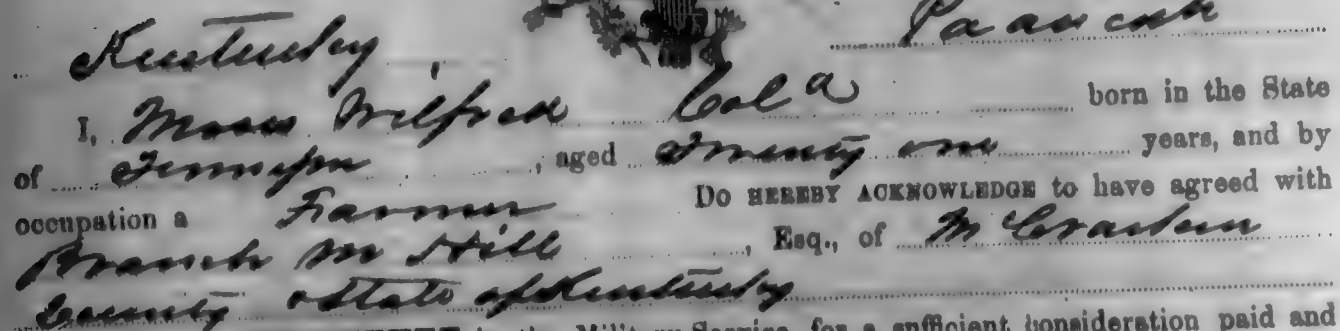 Kentucky
I, Moses Wilfred Col a born in the State
of Tennessee, aged Twenty one years, and by
occupation a Farmer Do HEREBY ACKNOWLEDGE to have agreed with
Branch M Hill, Esq., of McCracken
County State of Kentucky
Military Service, for a sufficient consideration paid and